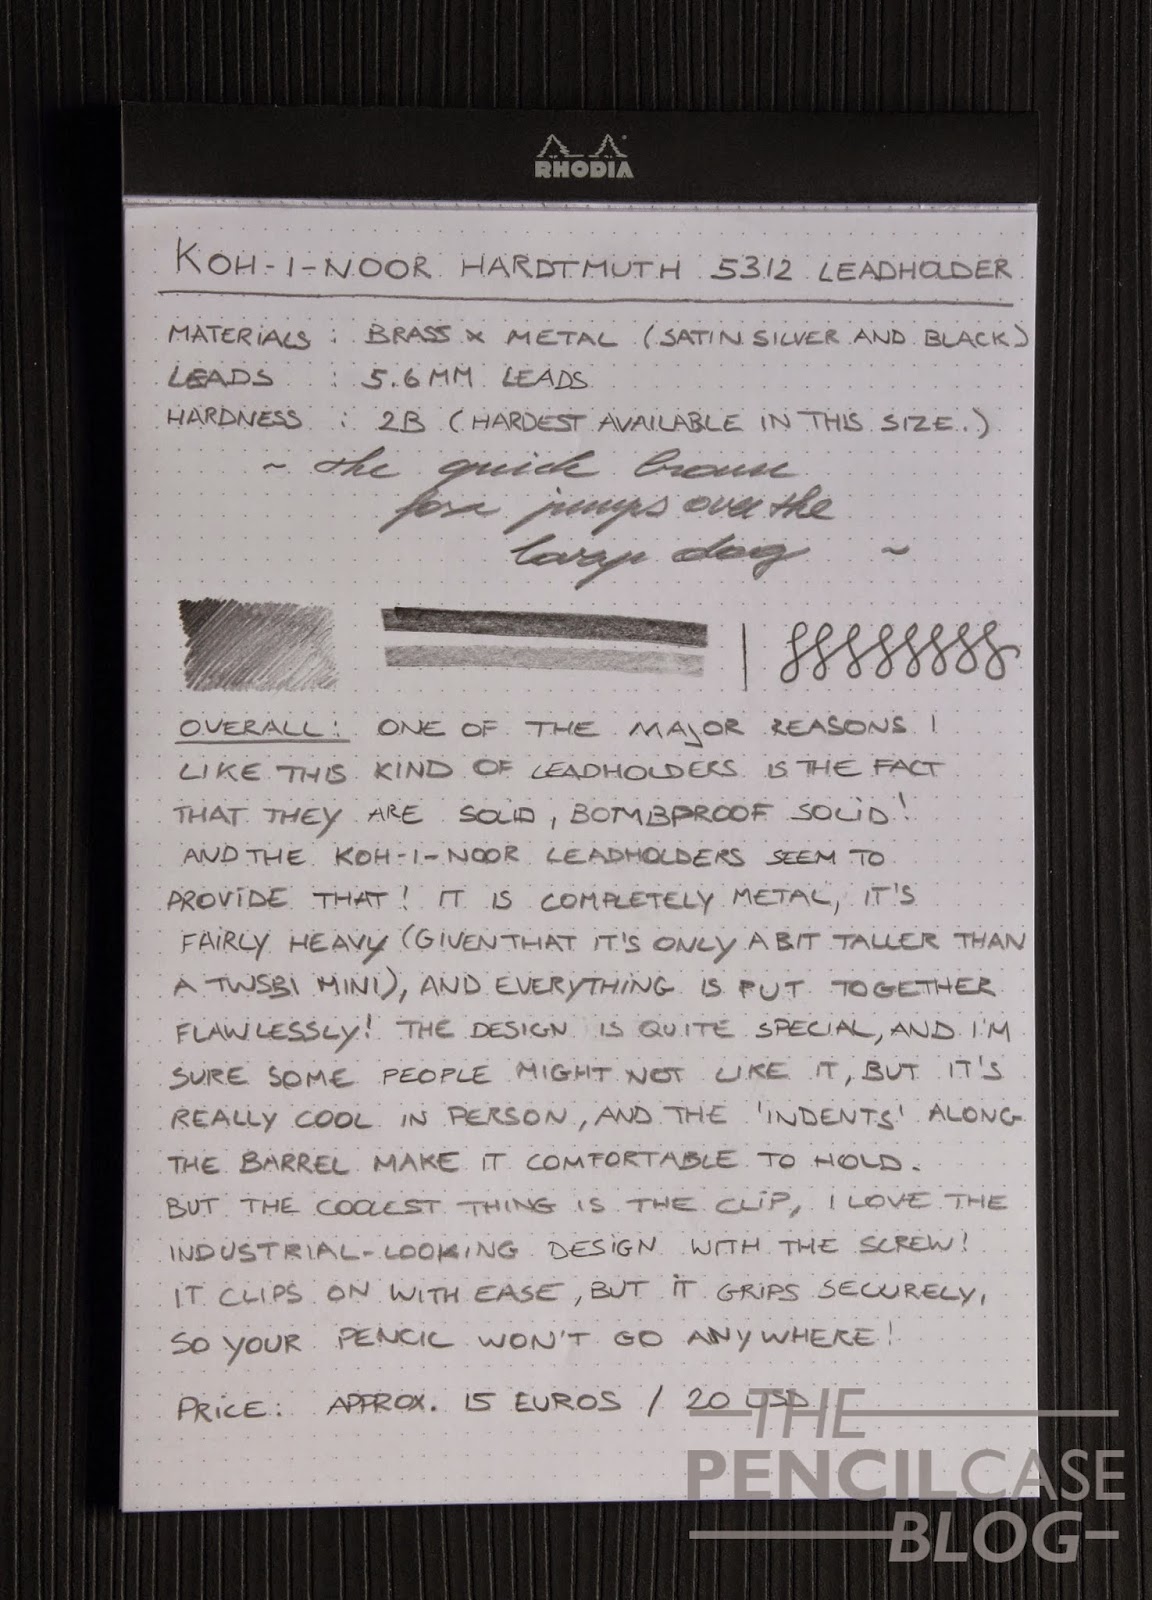 RHODIA
KOH-I-NOOR HARDTMUTH 5312 LEADHOLDER
MATERIALS : BRASS & METAL (SATIN SILVER AND BLACK)
LEADS : 5.6MM LEADS
HARDNESS : 2B (HARDEST AVAILABLE IN THIS SIZE.)
~ the quick brown
fox jumps over the
lazy dog ~
OVERALL: ONE OF THE MAJOR REASONS I
LIKE THIS KIND OF LEADHOLDERS IS THE FACT
THAT THEY ARE SOLID, BOMBPROOF SOLID!
AND THE KOH-I-NOOR LEADHOLDERS SEEM TO
PROVIDE THAT! IT IS COMPLETELY METAL, IT'S
FAIRLY HEAVY (GIVEN THAT IT'S ONLY A BIT TALLER THAN
A TWSBI MINI), AND EVERYTHING IS PUT TOGETHER
FLAWLESSLY! THE DESIGN IS QUITE SPECIAL, AND I'M
SURE SOME PEOPLE MIGHT NOT LIKE IT, BUT IT'S
REALLY COOL IN PERSON, AND THE 'INDENTS' ALONG
THE BARREL MAKE IT COMFORTABLE TO HOLD.
BUT THE COOLEST THING IS THE CLIP, I LOVE THE
INDUSTRIAL-LOOKING DESIGN WITH THE SCREW!
IT CLIPS ON WITH EASE, BUT IT GRIPS SECURELY,
SO YOUR PENCIL WON'T GO ANYWHERE!
PRICE: APPROX. 15 EUROS / 20 USD
THE
PENCILCASE
BLOG